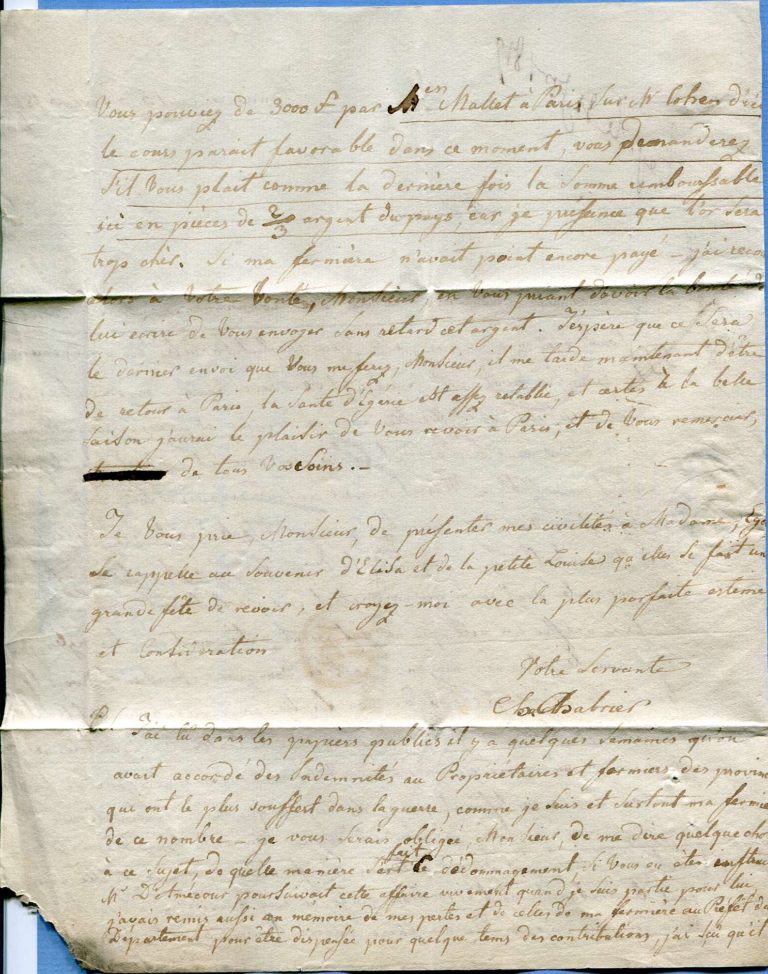 Vous pouviez de 3000 f par Mr Mallet à Paris sur Mr Cohen d'ici
le cours parait favorable dans ce moment, vous demanderez
s'il vous plait comme la dernière fois la somme remboursable
ici en pièces de 2/3 argent du pays, car je présume que l'or sera
trop chèr. Si ma fermière n'avait point encore payé - j'ai
alors à votre bonté, Monsieur, en vous priant d'avoir la bonté de
lui ecrire de vous envoyer sans retard cet argent. J'espère que ce sera
le dernier envoi que vous me ferez, Monsieur, il me tarde maintenant d'être
de retour à Paris, la santé d'Egérie est assez retablie, et certes à la belle
saison j'aurai le plaisir de vous revoir à Paris, et de vous remercier,
de tous vos soins. -
Je vous prie, Monsieur, de présenter mes civilités à Madame,
se rappelle au souvenir d'Elisa et de la petite Louise qu'elle se fait une
grande fête de revoir, et croyez-moi avec la plus parfaite estime
et considération
Votre servante
Ch. Chabrier
P.S. J'ai lû dans les papiers publics il y a quelques semaines qu'on
avait accordé des indemnités au Propriétaires et fermiers des provinces
qui ont le plus souffert dans la guerre, comme je suis et surtout ma fermière
de ce nombre - je vous serais obligée, Monsieur, de me dire quelque chose
à ce sujet, de quelle manière s'est fait le dédommagement, si vous en êtes instruit
Mr D'Otmécour poursuivait cette affaire vivement quand je suis partie pour lui,
j'avais remis aussi un mémoire de mes pertes et de celles de ma fermière au Préfet du
Département pour être dispensée pour quelque tems des contributions, j'ai sçu qu'il